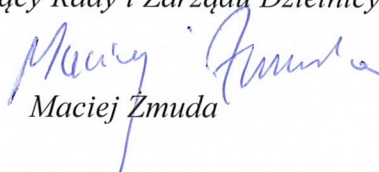 ący Rady i Zarządu Dzielnicy
Maciej Żmuda
Maciej Żmuda